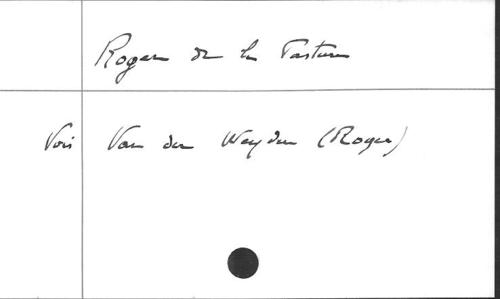 Roger de la Pasture
Voir Van der Weyden (Roger)